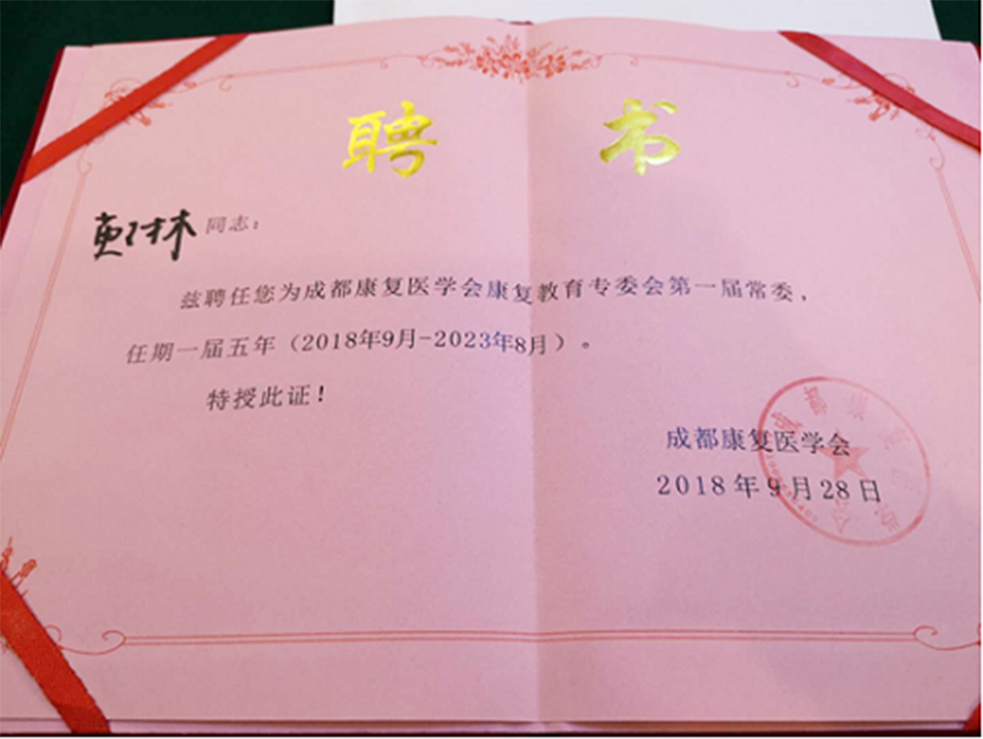 聘 书
同志：
兹聘任您为成都康复医学会康复教育专委会第一届常委，
任期一届五年（2018年9月-2023年8月）。
特授此证！
成都康复医学会
2018年9月28日